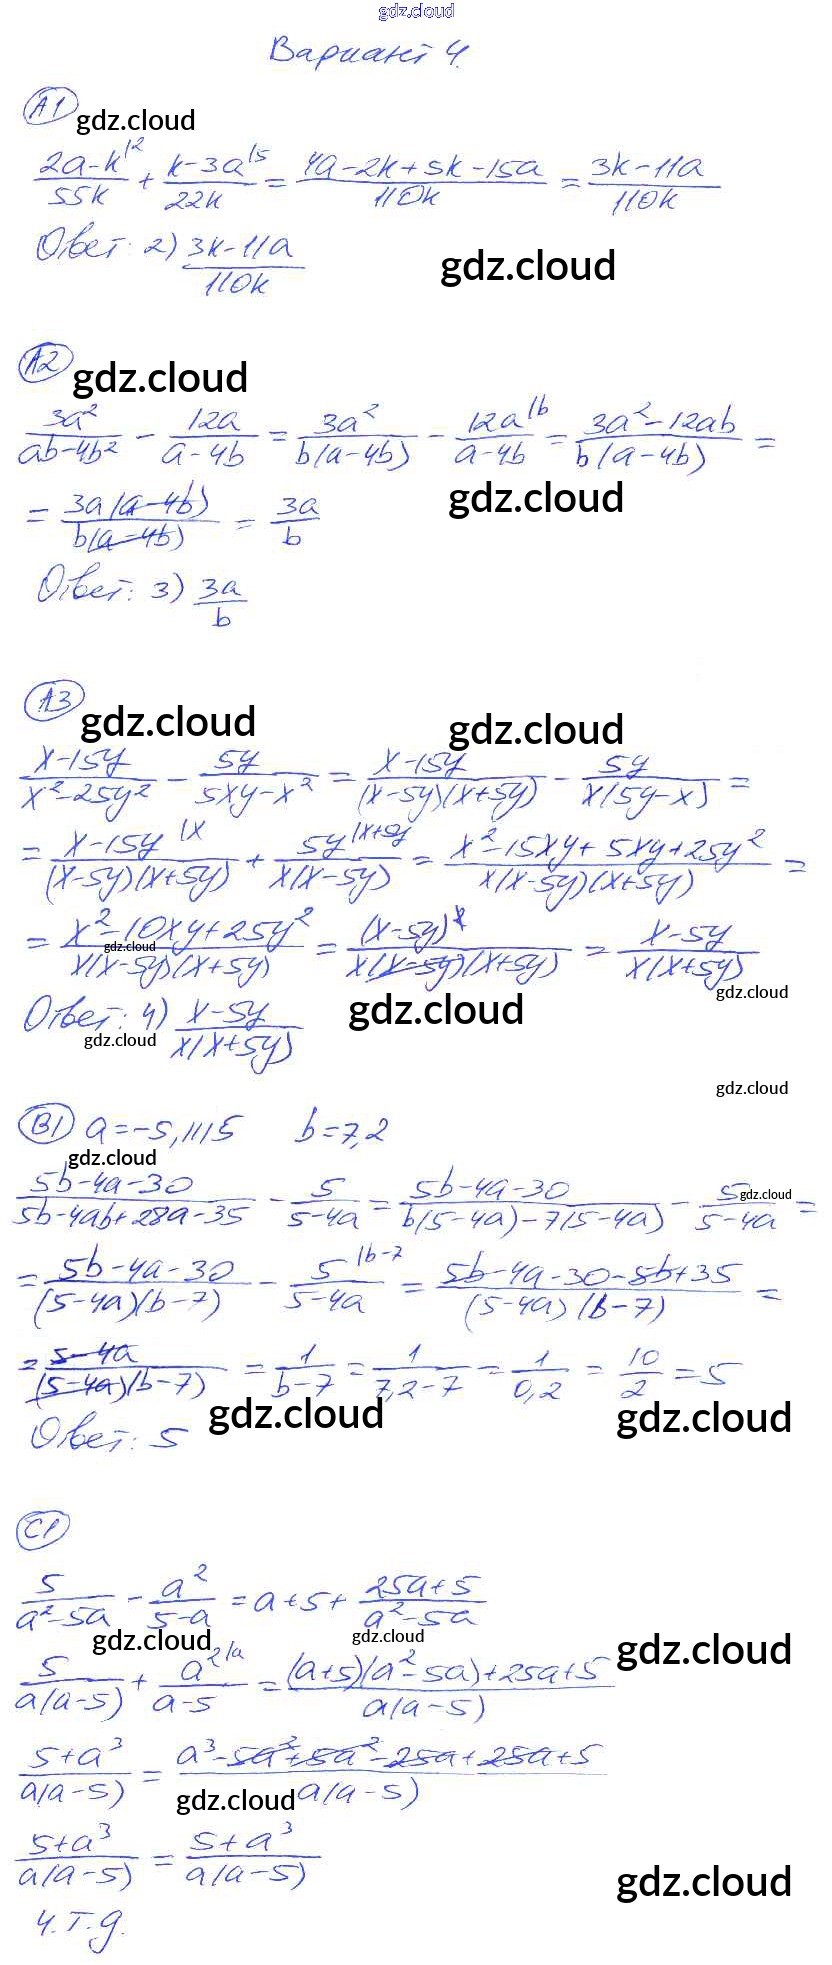 gdz.cloud
Вариант 4.
А1 gdz.cloud
(2a-k)/(55k) |2 + (k-3a)/(22k) |5 = (4a-2k+5k-15a)/(110k) = (3k-11a)/(110k)
Ответ: 2) (3k-11a)/(110k)
gdz.cloud
А2 gdz.cloud
3a²/(ab-4b²) - 12a/(a-4b) = 3a²/(b(a-4b)) - 12a/(a-4b) |b = (3a²-12ab)/(b(a-4b)) =
= 3a(a-4b)/(b(a-4b)) = 3a/b
gdz.cloud
Ответ: 3) 3a/b
А3 gdz.cloud
gdz.cloud
(x-15y)/(x²-25y²) - 5y/(5xy-x²) = (x-15y)/((x-5y)(x+5y)) - 5y/(x(5y-x)) =
= (x-15y)/((x-5y)(x+5y)) |x + 5y/(x(x-5y)) |x+5y = (x²-15xy+5xy+25y²)/(x(x-5y)(x+5y)) =
= (x²-10xy+25y²)/(x(x-5y)(x+5y)) = (x-5y)²/(x(x-5y)(x+5y)) = (x-5y)/(x(x+5y))
gdz.cloud
gdz.cloud
Ответ: 4) (x-5y)/(x(x+5y))
gdz.cloud
gdz.cloud
gdz.cloud
B1 a=-5,1115 b=7,2
gdz.cloud
(5b-4a-30)/(5b-4ab+28a-35) - 5/(5-4a) = (5b-4a-30)/(b(5-4a)-7(5-4a)) - 5/(5-4a) =
gdz.cloud
= (5b-4a-30)/((5-4a)(b-7)) - 5/(5-4a) |b-7 = (5b-4a-30-5b+35)/((5-4a)(b-7)) =
= (5-4a)/((5-4a)(b-7)) = 1/(b-7) = 1/(7,2-7) = 1/0,2 = 10/2 = 5
gdz.cloud
gdz.cloud
Ответ: 5
C1
5/(a²-5a) - a²/(5-a) = a+5+ (25a+5)/(a²-5a)
gdz.cloud
gdz.cloud
gdz.cloud
5/(a(a-5)) + a²/(a-5) |a = ((a+5)(a²-5a)+25a+5)/(a(a-5))
(5+a³)/(a(a-5)) = (a³-5a²+5a²-25a+25a+5)/(a(a-5))
gdz.cloud
(5+a³)/(a(a-5)) = (5+a³)/(a(a-5))
gdz.cloud
Ч.Т.д.